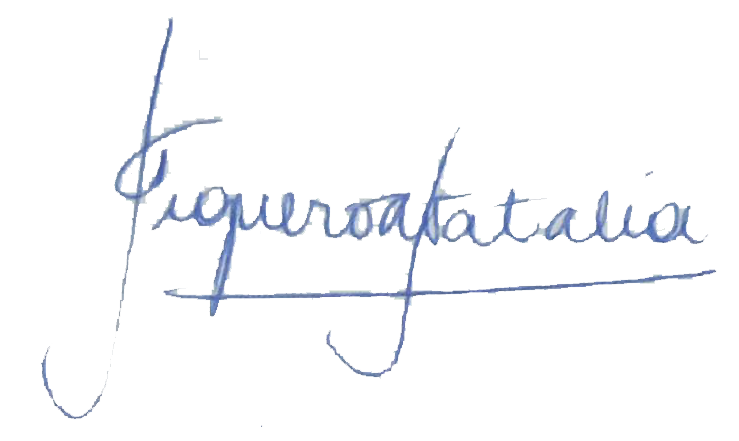 Figueroa Natalia